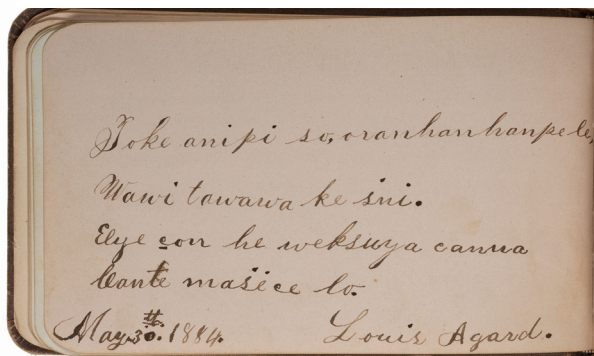 Toke anipi so, oranhanhanpe le,
Wawi tawawa ke śni.
Eye con he weksuya canna
Cante maśice lo.
May. 30th. 1884. Louis Agard.